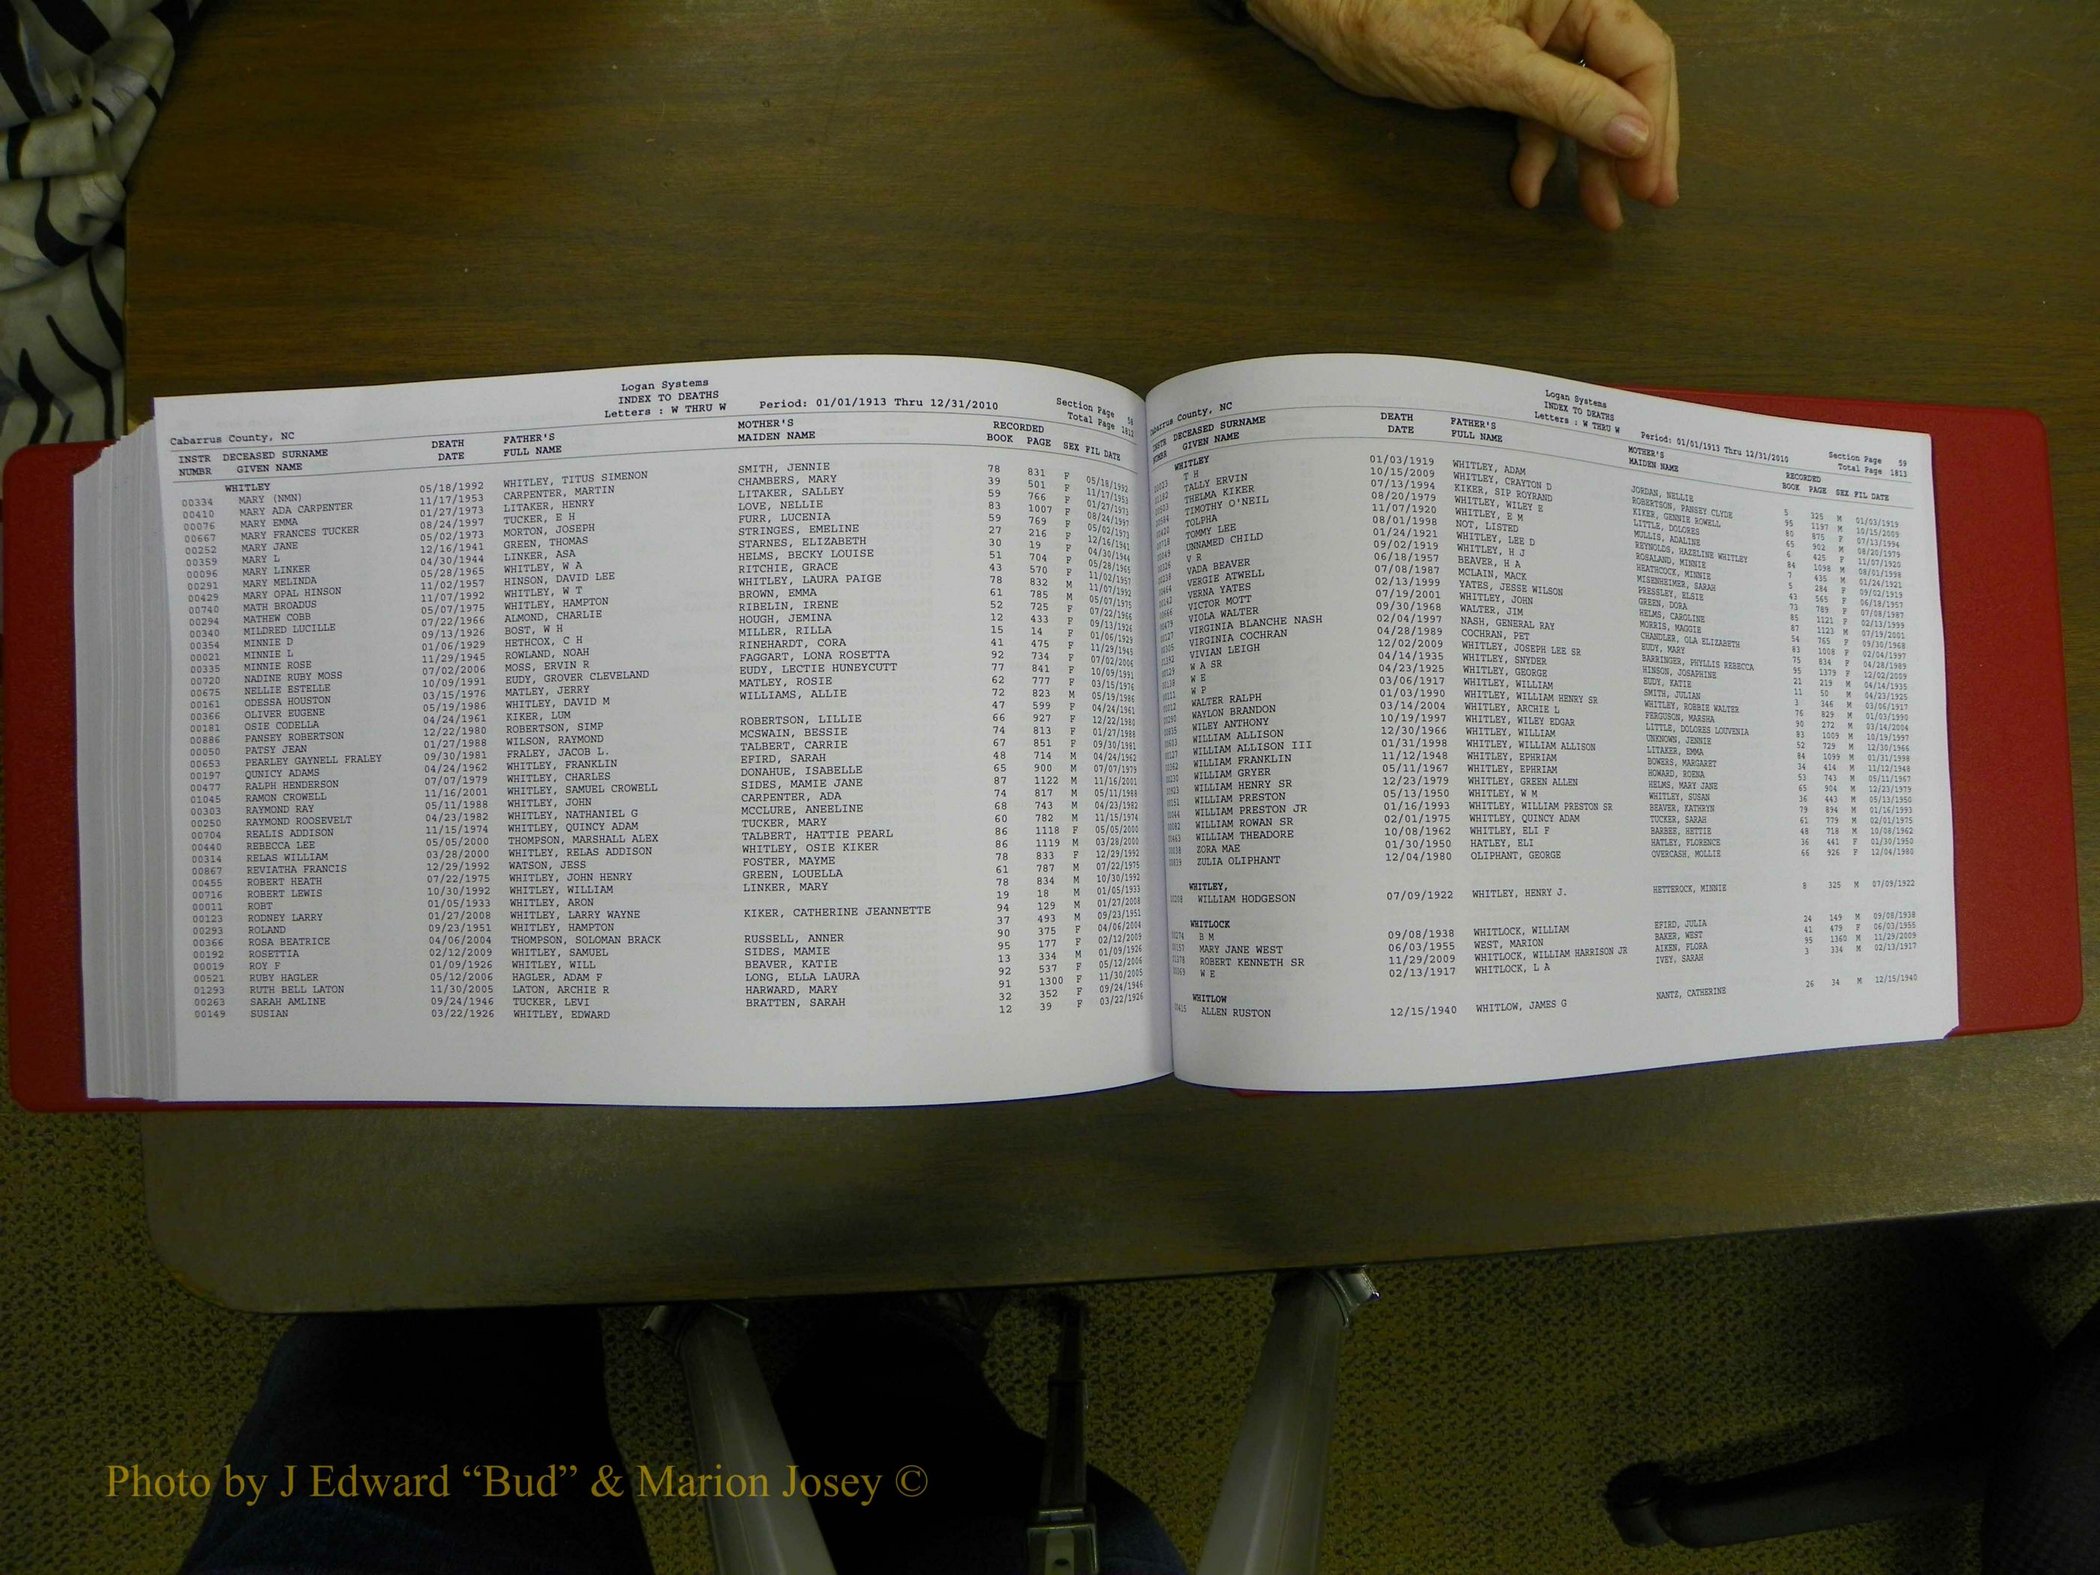 Logan Systems
INDEX TO DEATHS
Letters : W THRU W Period: 01/01/1913 Thru 12/31/2010 Section Page 58
Cabarrus County, NC Total Page 1813
INSTR DECEASED SURNAME DEATH FATHER'S MOTHER'S RECORDED
NUMBR GIVEN NAME DATE FULL NAME MAIDEN NAME BOOK PAGE SEX FIL DATE
WHITLEY
00334 MARY (NMN) 05/18/1992 WHITLEY, TITUS SIMENON SMITH, JENNIE 78 831 F 05/18/1992
00410 MARY ADA CARPENTER 11/17/1953 CARPENTER, MARTIN CHAMBERS, MARY 39 501 F 11/17/1953
00076 MARY EMMA 01/27/1973 LITAKER, HENRY LITAKER, SALLEY 59 766 F 01/27/1973
00667 MARY FRANCES TUCKER 08/24/1997 TUCKER, E H LOVE, NELLIE 83 1007 F 08/24/1997
00252 MARY JANE 05/02/1973 MORTON, JOSEPH FURR, LUCENIA 59 769 F 05/02/1973
00359 MARY L 12/16/1941 GREEN, THOMAS STRINGES, EMELINE 27 216 F 12/16/1941
00096 MARY LINKER 04/30/1944 LINKER, ASA STARNES, ELIZABETH 30 19 F 04/30/1944
00291 MARY MELINDA 05/28/1965 WHITLEY, W A HELMS, BECKY LOUISE 51 704 F 05/28/1965
00429 MARY OPAL HINSON 11/02/1957 HINSON, DAVID LEE RITCHIE, GRACE 43 570 F 11/02/1957
00740 MATH BROADUS 11/07/1992 WHITLEY, W T WHITLEY, LAURA PAIGE 78 832 M 11/07/1992
00294 MATHEW COBB 05/07/1975 WHITLEY, HAMPTON BROWN, EMMA 61 785 M 05/07/1975
00340 MILDRED LUCILLE 07/22/1966 ALMOND, CHARLIE RIBELIN, IRENE 52 725 F 07/22/1966
00354 MINNIE D 09/13/1926 BOST, W H HOUGH, JEMINA 12 433 F 09/13/1926
00021 MINNIE L 01/06/1929 HETHCOX, C H MILLER, RILLA 15 14 F 01/06/1929
00335 MINNIE ROSE 11/29/1945 ROWLAND, NOAH RINEHARDT, CORA 41 475 F 11/29/1945
00720 NADINE RUBY MOSS 07/02/2006 MOSS, ERVIN R FAGGART, LONA ROSETTA 92 734 F 07/02/2006
00675 NELLIE ESTELLE 10/09/1991 EUDY, GROVER CLEVELAND EUDY, LECTIE HUNEYCUTT 77 841 F 10/09/1991
00161 ODESSA HOUSTON 03/15/1976 MATLEY, JERRY MATLEY, ROSIE 62 777 F 03/15/1976
00366 OLIVER EUGENE 05/19/1986 WHITLEY, DAVID M WILLIAMS, ALLIE 72 823 M 05/19/1986
00181 OSIE CODELLA 04/24/1961 KIKER, LUM 47 599 F 04/24/1961
00886 PANSEY ROBERTSON 12/22/1980 ROBERTSON, SIMP ROBERTSON, LILLIE 66 927 F 12/22/1980
00050 PATSY JEAN 01/27/1988 WILSON, RAYMOND MCSWAIN, BESSIE 74 813 F 01/27/1988
00653 PEARLEY GAYNELL FRALEY 09/30/1981 FRALEY, JACOB L. TALBERT, CARRIE 67 851 F 09/30/1981
00197 QUNICY ADAMS 04/24/1962 WHITLEY, FRANKLIN EFIRD, SARAH 48 714 M 04/24/1962
00477 RALPH HENDERSON 07/07/1979 WHITLEY, CHARLES DONAHUE, ISABELLE 65 900 M 07/07/1979
01045 RAMON CROWELL 11/16/2001 WHITLEY, SAMUEL CROWELL SIDES, MAMIE JANE 87 1122 M 11/16/2001
00303 RAYMOND RAY 05/11/1988 WHITLEY, JOHN CARPENTER, ADA 74 817 M 05/11/1988
00250 RAYMOND ROOSEVELT 04/23/1982 WHITLEY, NATHANIEL G MCCLURE, ANEELINE 68 743 M 04/23/1982
00704 REALIS ADDISON 11/15/1974 WHITLEY, QUINCY ADAM TUCKER, MARY 60 782 M 11/15/1974
00440 REBECCA LEE 05/05/2000 THOMPSON, MARSHALL ALEX TALBERT, HATTIE PEARL 86 1118 F 05/05/2000
00314 RELAS WILLIAM 03/28/2000 WHITLEY, RELAS ADDISON WHITLEY, OSIE KIKER 86 1119 M 03/28/2000
00867 REVIATHA FRANCIS 12/29/1992 WATSON, JESS FOSTER, MAYME 78 833 F 12/29/1992
00455 ROBERT HEATH 07/22/1975 WHITLEY, JOHN HENRY GREEN, LOUELLA 61 787 M 07/22/1975
00716 ROBERT LEWIS 10/30/1992 WHITLEY, WILLIAM LINKER, MARY 78 834 M 10/30/1992
00011 ROBT 01/05/1933 WHITLEY, ARON 19 18 M 01/05/1933
00123 RODNEY LARRY 01/27/2008 WHITLEY, LARRY WAYNE KIKER, CATHERINE JEANNETTE 94 129 M 01/27/2008
00293 ROLAND 09/23/1951 WHITLEY, HAMPTON 37 493 M 09/23/1951
00366 ROSA BEATRICE 04/06/2004 THOMPSON, SOLOMAN BRACK RUSSELL, ANNER 90 375 F 04/06/2004
00192 ROSETTIA 02/12/2009 WHITLEY, SAMUEL SIDES, MAMIE 95 177 F 02/12/2009
00019 ROY F 01/09/1926 WHITLEY, WILL BEAVER, KATIE 13 334 M 01/09/1926
00521 RUBY HAGLER 05/12/2006 HAGLER, ADAM F LONG, ELLA LAURA 92 537 F 05/12/2006
01293 RUTH BELL LATON 11/30/2005 LATON, ARCHIE R HARWARD, MARY 91 1300 F 11/30/2005
00263 SARAH AMLINE 09/24/1946 TUCKER, LEVI BRATTEN, SARAH 32 352 F 09/24/1946
00149 SUSIAN 03/22/1926 WHITLEY, EDWARD 12 39 F 03/22/1926
Logan Systems
INDEX TO DEATHS
Letters : W THRU W Period: 01/01/1913 Thru 12/31/2010 Section Page 59
Cabarrus County, NC Total Page 1813
INSTR DECEASED SURNAME DEATH FATHER'S MOTHER'S RECORDED
NUMBR GIVEN NAME DATE FULL NAME MAIDEN NAME BOOK PAGE SEX FIL DATE
WHITLEY
T H 01/03/1919 WHITLEY, ADAM JORDAN, NELLIE 5 325 M 01/03/1919
TALLY ERVIN 10/15/2009 WHITLEY, CRAYTON D ROBERTSON, PANSEY CLYDE 95 1197 M 10/15/2009
THELMA KIKER 07/13/1994 KIKER, SIP ROYRAND KIKER, GENNIE ROWELL 80 875 F 07/13/1994
TIMOTHY O'NEIL 08/20/1979 WHITLEY, WILEY E LITTLE, DOLORES 65 902 M 08/20/1979
TOLPHA 11/07/1920 WHITLEY, E M MULLIS, ADALINE 6 425 F 11/07/1920
TOMMY LEE 08/01/1998 NOT, LISTED REYNOLDS, HAZELINE WHITLEY 84 1098 M 08/01/1998
UNNAMED CHILD 01/24/1921 WHITLEY, LEE D ROSALAND, MINNIE 7 435 M 01/24/1921
V R 09/02/1919 WHITLEY, H J HEATHCOCK, MINNIE 5 284 F 09/02/1919
VADA BEAVER 06/18/1957 BEAVER, H A MISENHEIMER, SARAH 43 565 F 06/18/1957
VERGIE ATWELL 07/08/1987 MCLAIN, MACK PRESSLEY, ELSIE 73 789 F 07/08/1987
VERNA YATES 02/13/1999 YATES, JESSE WILSON GREEN, DORA 85 1121 F 02/13/1999
VICTOR MOTT 07/19/2001 WHITLEY, JOHN HELMS, CAROLINE 87 1123 M 07/19/2001
VIOLA WALTER 09/30/1968 WALTER, JIM MORRIS, MAGGIE 54 765 F 09/30/1968
VIRGINIA BLANCHE NASH 02/04/1997 NASH, GENERAL RAY CHANDLER, OLA ELIZABETH 83 1008 F 02/04/1997
VIRGINIA COCHRAN 04/28/1989 COCHRAN, PET EUDY, MARY 75 834 F 04/28/1989
VIVIAN LEIGH 12/02/2009 WHITLEY, JOSEPH LEE SR BARRINGER, PHYLLIS REBECCA 95 1379 F 12/02/2009
W A SR 04/14/1935 WHITLEY, SNYDER HINSON, JOSAPHINE 21 219 M 04/14/1935
W E 04/23/1925 WHITLEY, GEORGE EUDY, KATIE 11 50 M 04/23/1925
W P 03/06/1917 WHITLEY, WILLIAM SMITH, JULIAN 3 346 M 03/06/1917
WALTER RALPH 01/03/1990 WHITLEY, WILLIAM HENRY SR WHITLEY, ROBBIE WALTER 76 829 M 01/03/1990
WAYLON BRANDON 03/14/2004 WHITLEY, ARCHIE L FERGUSON, MARSHA 90 272 M 03/14/2004
WILEY ANTHONY 10/19/1997 WHITLEY, WILEY EDGAR LITTLE, DOLORES LOUVENIA 83 1009 M 10/19/1997
WILLIAM ALLISON 12/30/1966 WHITLEY, WILLIAM UNKNOWN, JENNIE 52 729 M 12/30/1966
WILLIAM ALLISON III 01/31/1998 WHITLEY, WILLIAM ALLISON LITAKER, EMMA 84 1099 M 01/31/1998
WILLIAM FRANKLIN 11/12/1948 WHITLEY, EPHRIAM BOWERS, MARGARET 34 414 M 11/12/1948
WILLIAM GRYER 05/11/1967 WHITLEY, EPHRIAM HOWARD, ROENA 53 743 M 05/11/1967
WILLIAM HENRY SR 12/23/1979 WHITLEY, GREEN ALLEN HELMS, MARY JANE 65 904 M 12/23/1979
WILLIAM PRESTON 05/13/1950 WHITLEY, W M WHITLEY, SUSAN 36 443 M 05/13/1950
WILLIAM PRESTON JR 01/16/1993 WHITLEY, WILLIAM PRESTON SR BEAVER, KATHRYN 79 894 M 01/16/1993
WILLIAM ROWAN SR 02/01/1975 WHITLEY, QUINCY ADAM TUCKER, SARAH 61 779 M 02/01/1975
WILLIAM THEADORE 10/08/1962 WHITLEY, ELI F BARBEE, HETTIE 48 718 M 10/08/1962
ZORA MAE 01/30/1950 HATLEY, ELI HATLEY, FLORENCE 36 441 F 01/30/1950
ZULIA OLIPHANT 12/04/1980 OLIPHANT, GEORGE OVERCASH, MOLLIE 66 926 F 12/04/1980
WHITLEY,
WILLIAM HODGESON 07/09/1922 WHITLEY, HENRY J. HETTEROCK, MINNIE 8 325 M 07/09/1922
WHITLOCK
B M 09/08/1938 WHITLOCK, WILLIAM EFIRD, JULIA 24 149 M 09/08/1938
MARY JANE WEST 06/03/1955 WEST, MARION BAKER, WEST 41 479 F 06/03/1955
ROBERT KENNETH SR 11/29/2009 WHITLOCK, WILLIAM HARRISON JR AIKEN, FLORA 95 1360 M 11/29/2009
W E 02/13/1917 WHITLOCK, L A IVEY, SARAH 3 334 M 02/13/1917
WHITLOW
ALLEN RUSTON 12/15/1940 WHITLOW, JAMES G NANTZ, CATHERINE 26 34 M 12/15/1940
Photo by J Edward “Bud” & Marion Josey ©